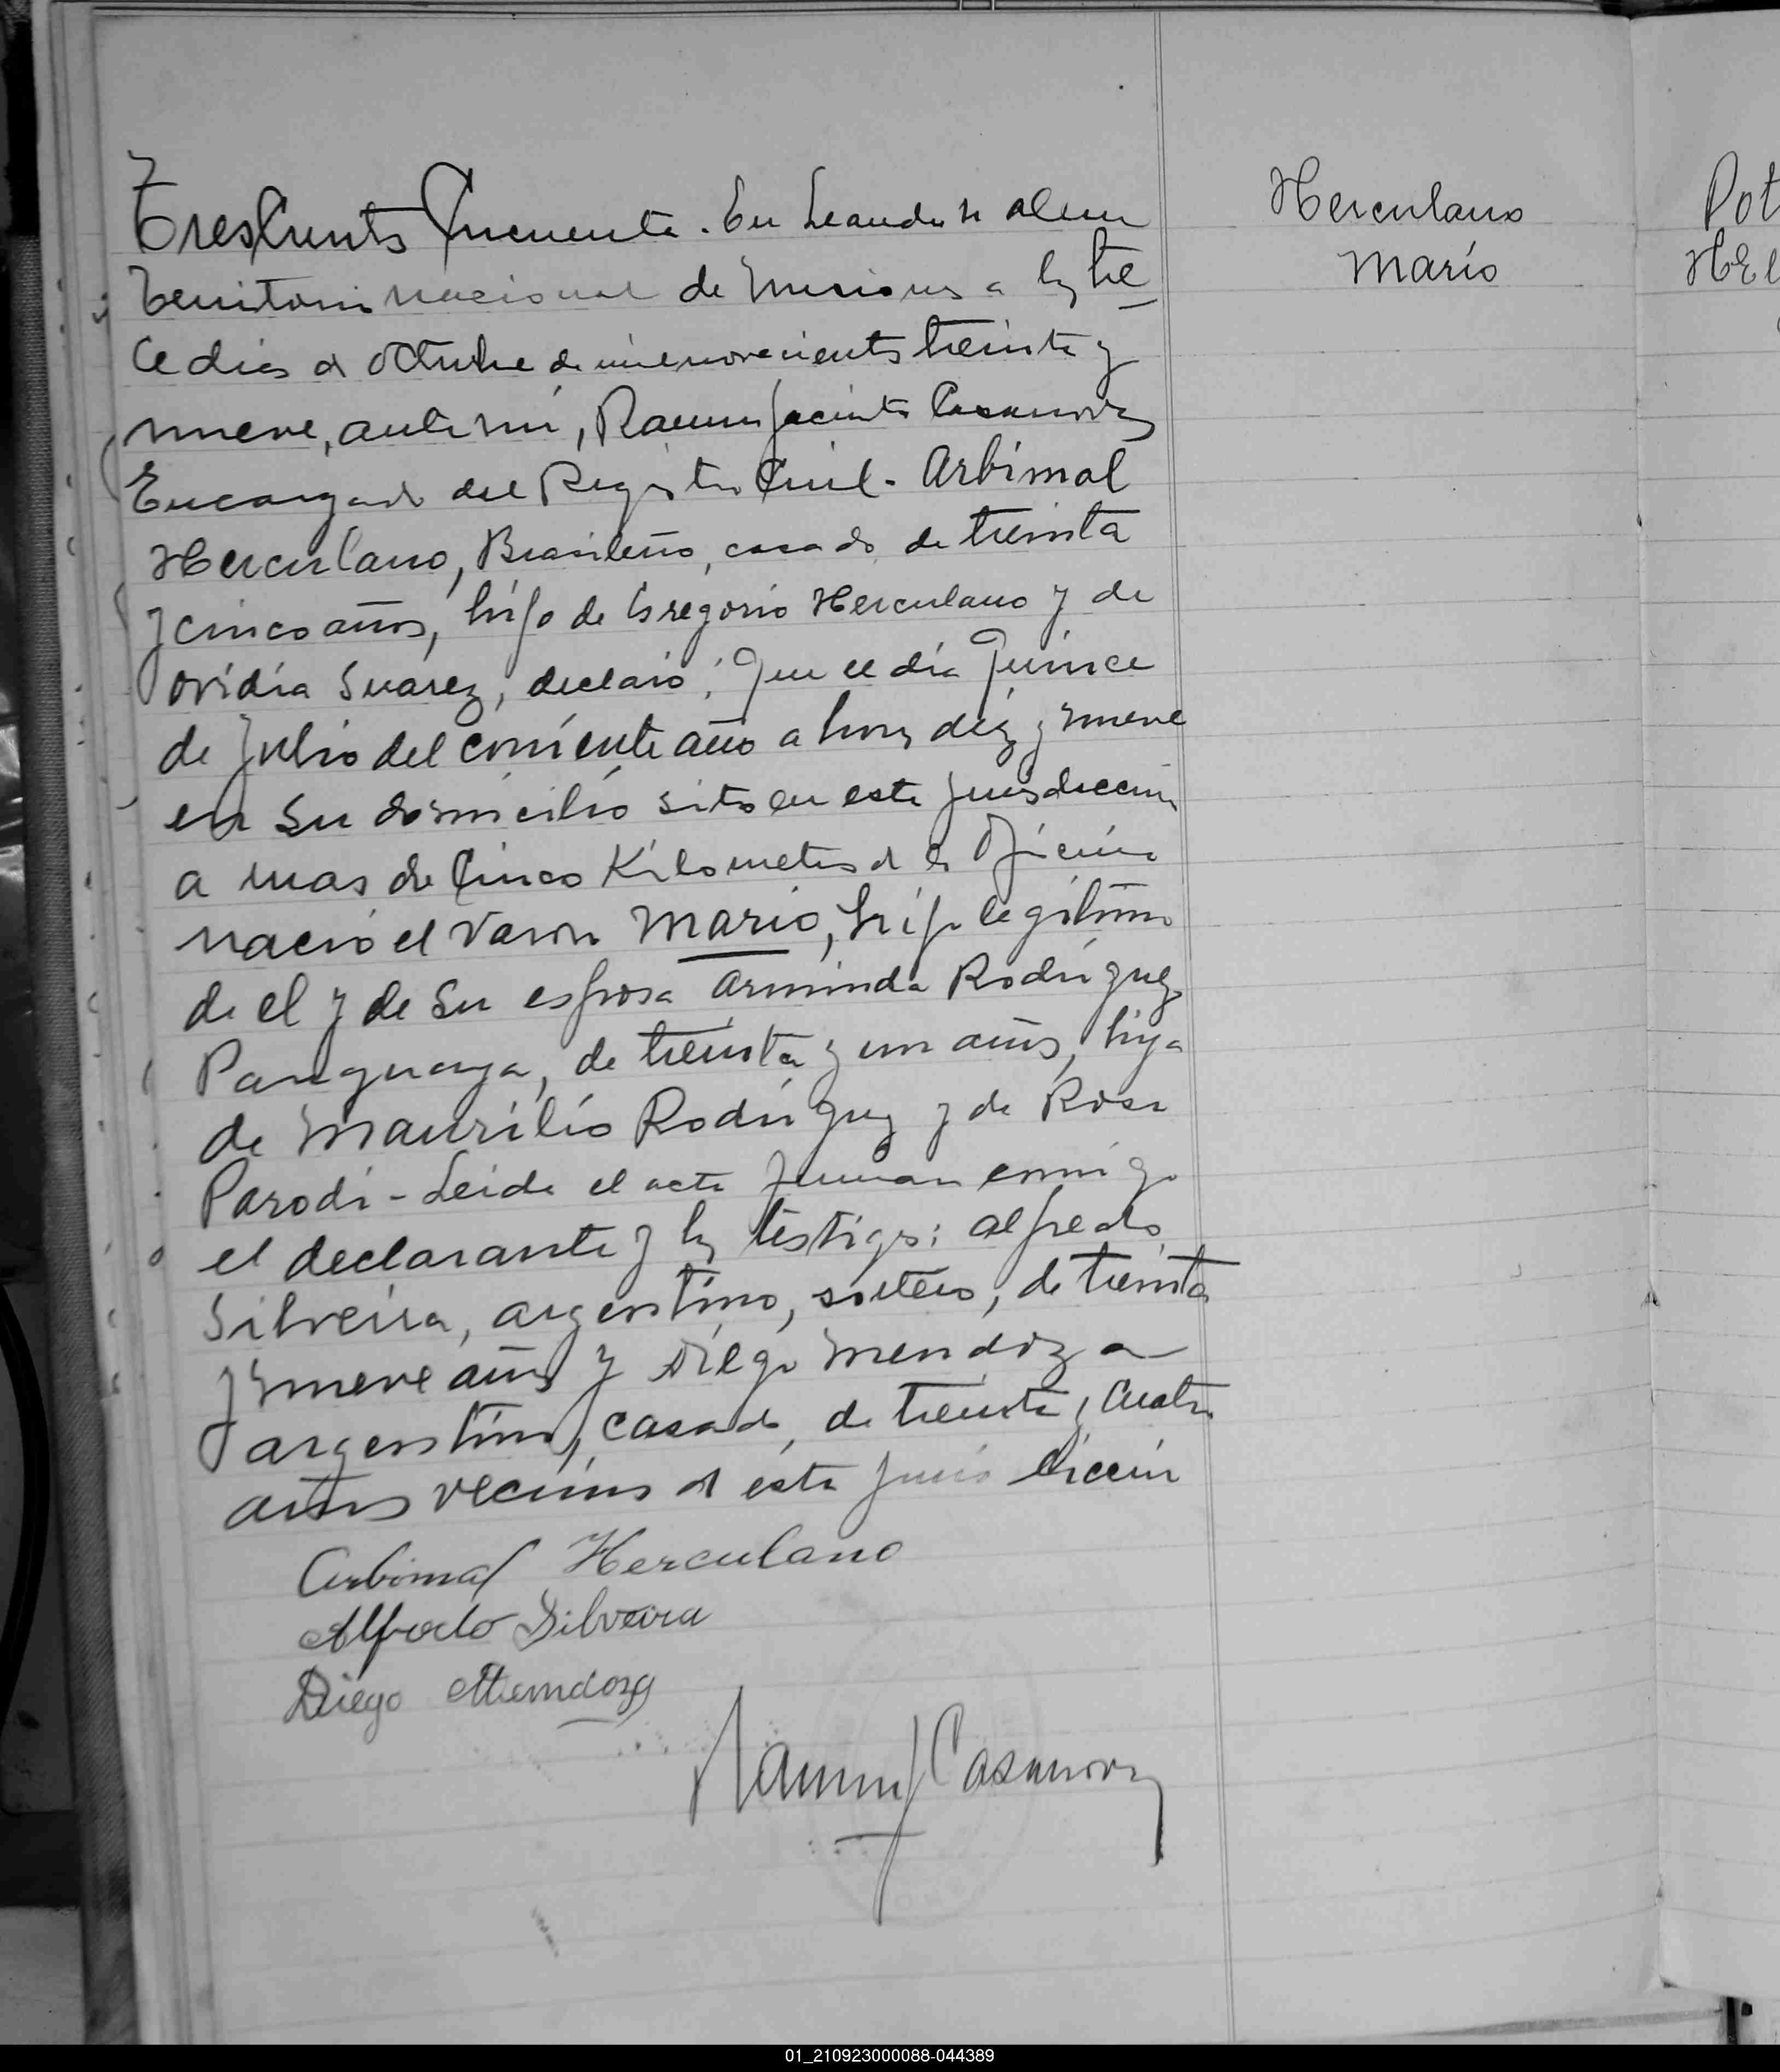 Trescientos Cincuenta. En Leandro N Alem
Territorio nacional de Misiones a los tre
ce dias de octubre de mil novecientos treinta y
nueve, ante mí, Ramon Jacinto Casanova
Encargado del Registro Civil. Arbimal
Herculano, Brasileño, casado, de treinta
y cinco años, hijo de Gregorio Herculano y de
Ovidia Suarez, declaró: Que el día quince
de Julio del corriente año a horas diez y nueve
en su domicilio sito en esta jurisdiccion
a mas de cinco Kilometros de la Oficina
nació el varon Mario, hijo legitimo
de el y de su esposa Arminda Rodriguez
Paraguaya, de treinta y un años, hija
de Maurilio Rodriguez y de Rosa
Parodi - Leida el acta firman conmigo
el declarante y los testigos: Alfredo
Silveira, argentino, soltero, de treinta
y nueve años y Diego Mendoza
argentino, casado, de treinta y cuatro
años vecinos de esta jurisdiccion
Arbimal Herculano
Alfredo Silveira
Diego Mendoza
Ramon J Casanova
Herculano
Mario
Pot
HEl
01_210923000088-044389